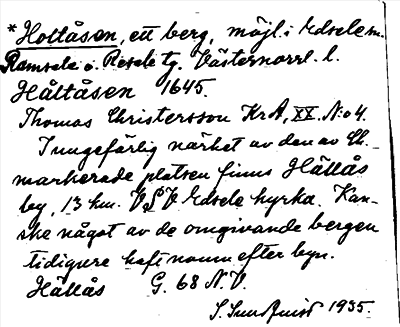 * Hottåsen, ett berg, möjl. i Edsele sn.
Ramsele o. Resele tg. Västernorrl. l.
Håttåsen 1645.
Thomas Christersson KrA, XX. N:o 4.
I ungefärlig närhet av den av Ch.
markerade platsen finns Hällås
by, 13 km. VSV Edsele kyrka. Kan-
ske något av de omgivande bergen
tidigare haft namn efter byn.
Hällås G. 68 N.V.
S. Sundquist 1935.